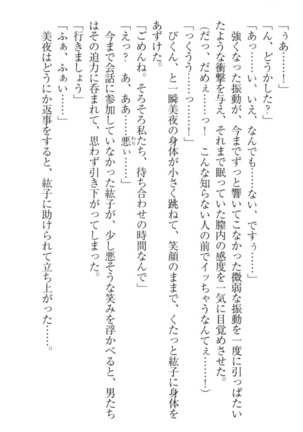 「うぁ……！」
「ん、どうかした？」
「あっ……い、いえ、なんでも……ない、ですぅ……」
強くなった振動が、今までずっと響いてこなかった微弱な振動を一度に引っぱたい
たような衝撃を与え、それまで眠っていた膣内の感度を一気に目覚めさせた。
（だっ、だめぇっ……っ！　こんな知らない人の前でイッちゃうなんてぇ……！）
「っくうう……っっ……！」
びくん、と一瞬美夜の身体が小さく跳ねて、笑顔のままで、くたっと紘子に身体を
あずけた。
「ごめんね。そろそろ私たち、待ち合わせの時間なんで」
「えっ？　あ、ああ……悪ぃ……」
今まで会話に参加していなかった紘子が、少し悪そうな笑みを浮かべると、男たち
はその迫力に呑まれて、思わず引き下がってしまった。
「行きましょう」
「ふぁ、ふぁい……」
美夜はどうにか返事をすると、紘子に助けられて立ち上がった……。